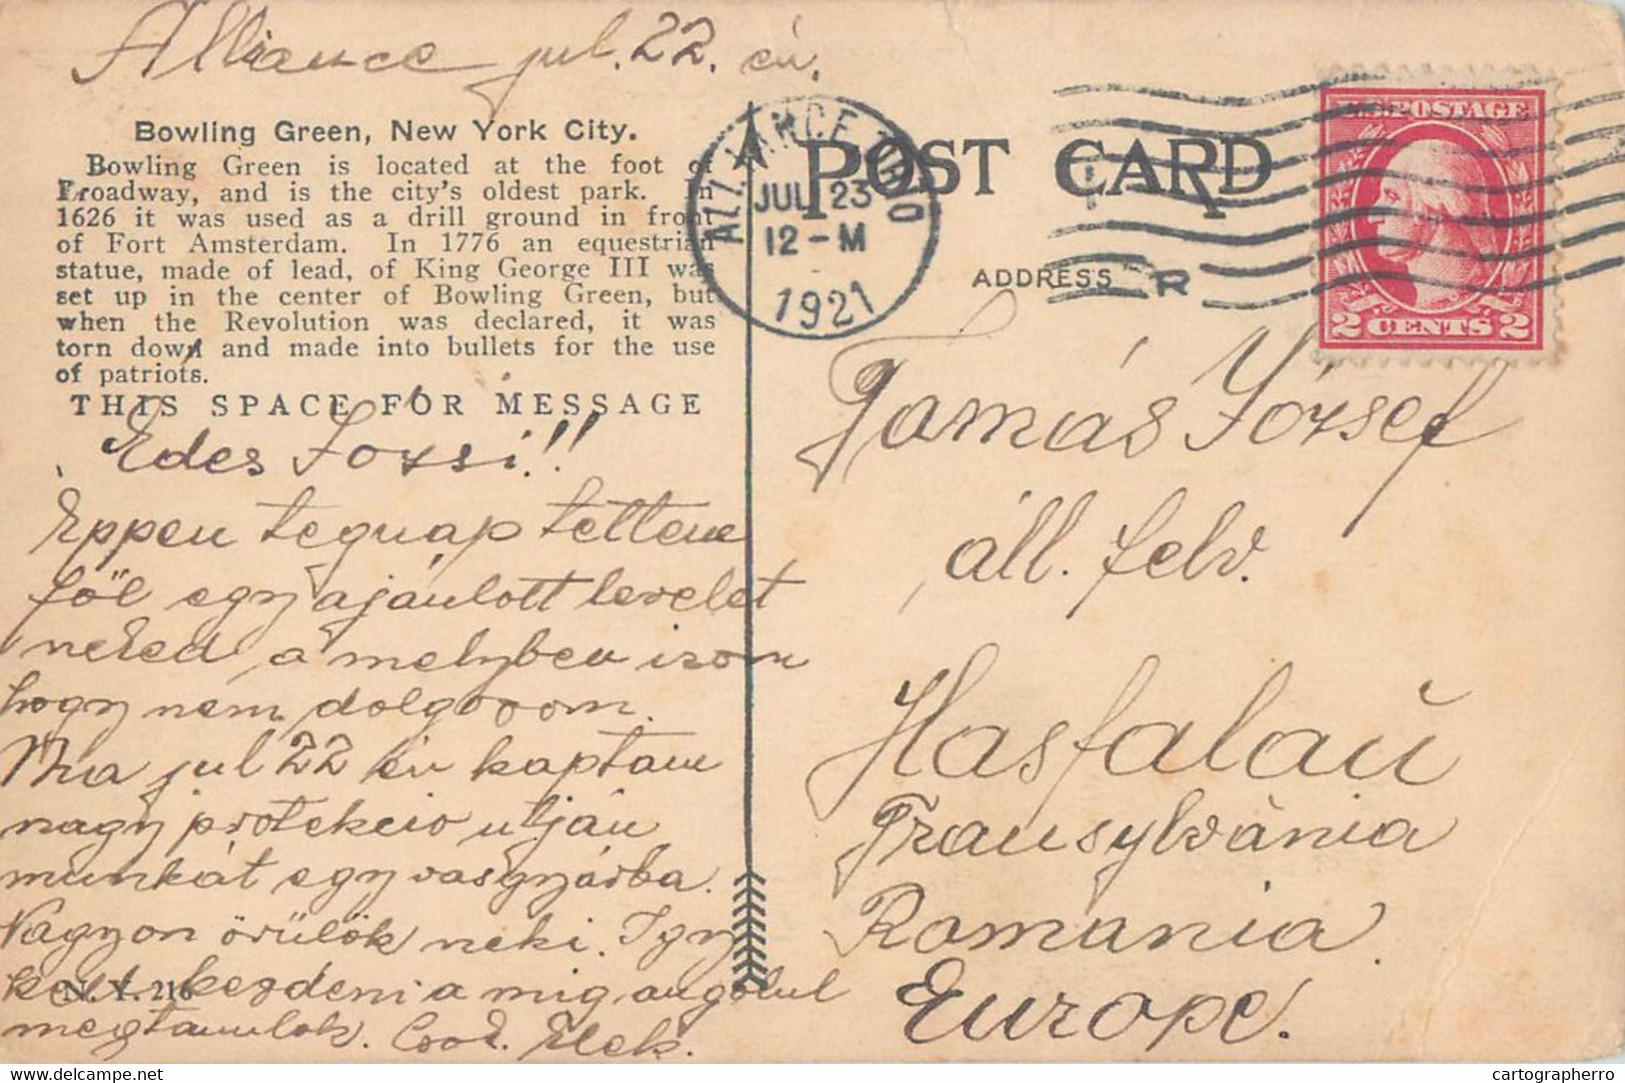 Alliance jul. 22. én.
Bowling Green, New York City.
Bowling Green is located at the foot of
Broadway, and is the city's oldest park. In
1626 it was used as a drill ground in front
of Fort Amsterdam. In 1776 an equestrian
statue, made of lead, of King George III was
set up in the center of Bowling Green, but
when the Revolution was declared, it was
torn down and made into bullets for the use
of patriots.
THIS SPACE FOR MESSAGE
Edes Jozsi!!
Eppen tegnap tettem
föl egy ajánlott levelet
neked, a melyben irom
hogy nem dolgozom.
Ma jul 22 én kaptam
nagy protekcio utján
munkát egy vasgyárba.
Nagyon örülök neki. Igy
kell kezdeni a mig angolul
megtanulok. Elek.
N. Y. 216
ALLIANCE OHIO
JUL 23
12-M
1921
POST CARD
ADDRESS
R
U.S. POSTAGE
2 CENTS 2
Tamás József
áll. felv.
Hasfalaŭ
Transylvánia
Romania
Europe.
DELCAMPE.NET
cartographerro